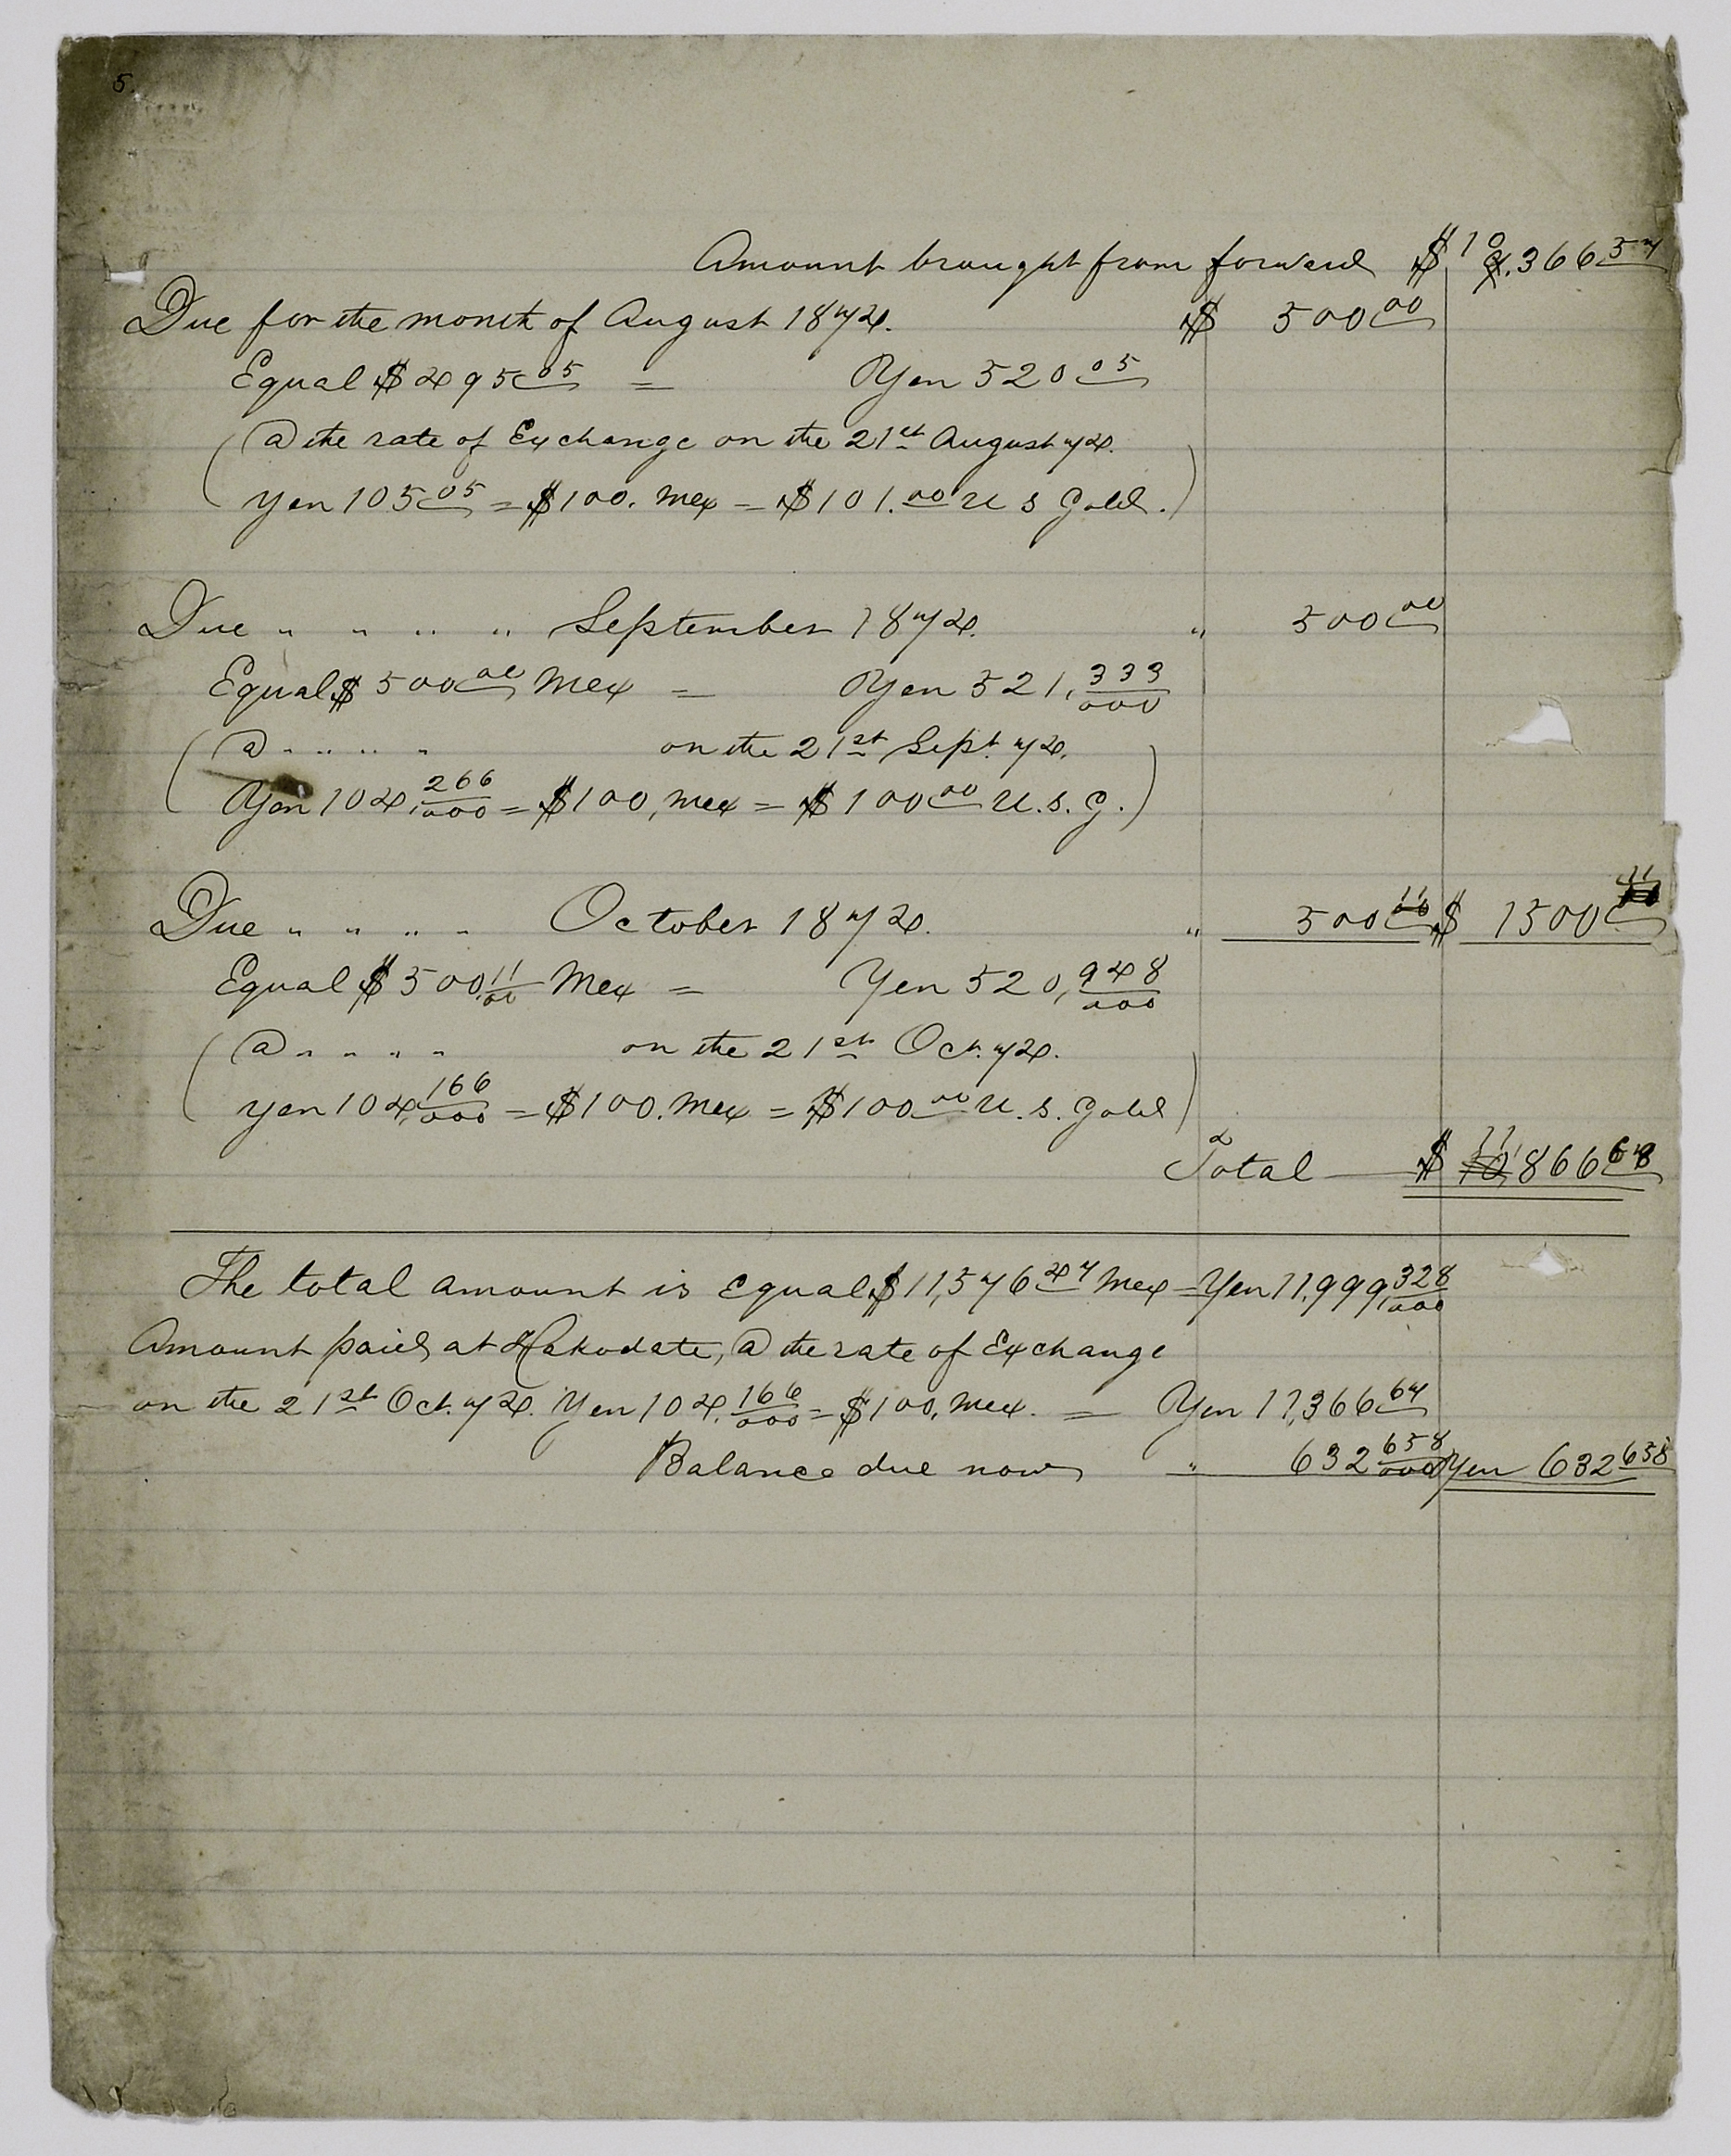 5.
Amount brought from forward $ 10,366 57
Due for the month of August 1874. $ 500 00
Equal $ 495 05 = Yen 520 05
(@ the rate of Exchange on the 21st August 74.
Yen 105 05 = $100. Mex = $101.00 U S Gold.)
Due " " " " September 1874. " 500 00
Equal $ 500 00 Mex = Yen 521, 333/000
(@ " " " " on the 21st Sept. 74.
Yen 104, 266/000 = $100, Mex = $100 00 U.S.G.)
Due " " " " October 1874. " 500 11 $ 1500 11
Equal $ 500, 11/00 Mex = Yen 520, 948/000
(@ " " " " on the 21st Oct. 74.
Yen 104, 166/000 = $100. Mex = $100 00 U.S. Gold)
Total — $ 11,866 68
The total amount is Equal $ 11,576 47 Mex = Yen 11,999, 328/000
Amount paid at Hakodate, @ the rate of Exchange
on the 21st Oct. 74. Yen 104, 166/000 = $100, Mex. = Yen 11,366 67
Balance due now " 632 658/000 Yen 632 658